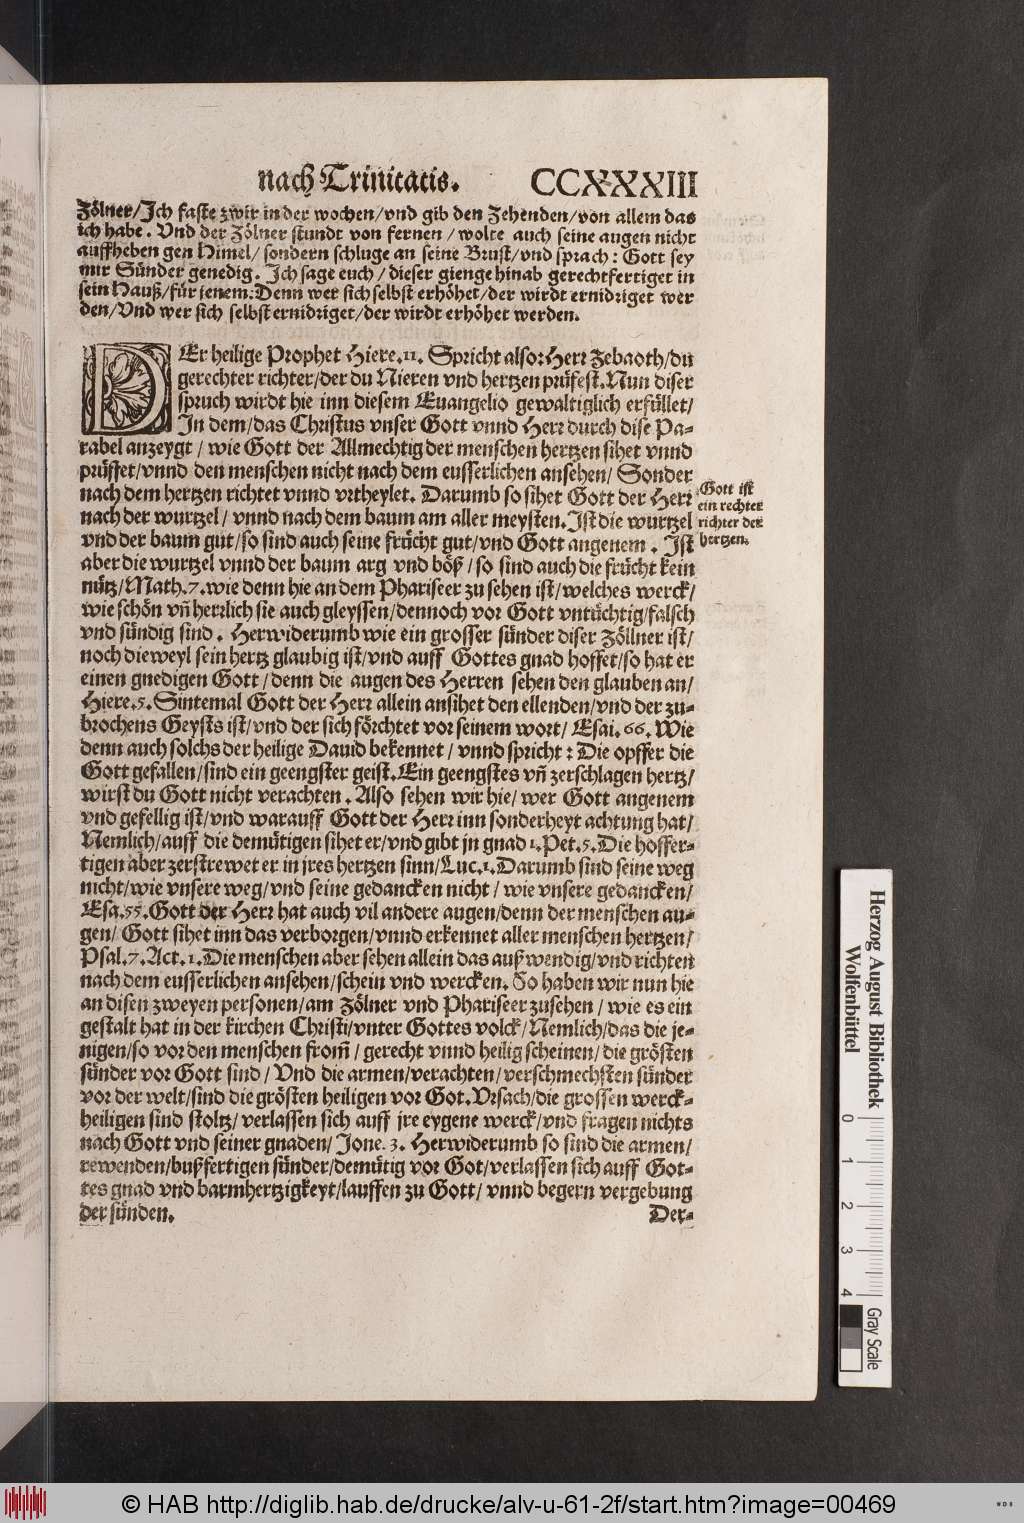 nach Trinitatis. CCXXXIII
Zölner/Ich faste zwir in der wochen/vnd gib den Zehenden/von allem das
ich habe. Vnd der Zölner stundt von fernen/wolte auch seine augen nicht
auffheben gen Himel/sondern schluge an seine Brust/vnd sprach: Gott sey
mir Sünder genedig. Ich sage euch/dieser gienge hinab gerechtfertiget in
sein Hauß/für jenem: Denn wer sich selbst erhöhet/der wirdt ernidriget wer
den/Vnd wer sich selbst ernidriget/der wirdt erhöhet werden.
DEr heilige Prophet Hiere.11. Spricht also: Herr Zebaoth/du
gerechter richter/der du Nieren vnd hertzen prüfest. Nun diser
spruch wirdt hie inn diesem Euangelio gewaltiglich erfüllet/
In dem/das Christus vnser Gott vnnd Herr durch dise Pa-
rabel anzeygt/wie Gott der Allmechtig der menschen hertzen sihet vnnd
prüffet/vnnd den menschen nicht nach dem eusserlichen ansehen/Sonder
nach dem hertzen richtet vnnd vrtheylet. Darumb so sihet Gott der Herr
nach der wurtzel/vnnd nach dem baum am aller meysten. Ist die wurtzel
vnd der baum gut/so sind auch seine frücht gut/vnd Gott angenem. Ist
aber die wurtzel vnnd der baum arg vnd böß/so sind auch die frücht kein
nütz/Math.7. wie denn hie an dem Phariseer zu sehen ist/welches werck/
wie schön vñ herrlich sie auch gleyssen/dennoch vor Gott vntüchtig/falsch
vnd sündig sind. Herwiderumb wie ein grosser sünder diser Zöllner ist/
noch dieweyl sein hertz glaubig ist/vnd auff Gottes gnad hoffet/so hat er
einen gnedigen Gott/denn die augen des Herren sehen den glauben an/
Hiere.5. Sintemal Gott der Herr allein ansihet den ellenden/vnd der zu-
brochens Geysts ist/vnd der sich förchtet vor seinem wort/Esai.66. Wie
denn auch solchs der heilige Dauid bekennet/vnnd spricht: Die opffer die
Gott gefallen/sind ein geengster geist. Ein geengstes vñ zerschlagen hertz/
wirst du Gott nicht verachten. Also sehen wir hie/wer Gott angenem
vnd gefellig ist/vnd warauff Gott der Herr inn sonderheyt achtung hat/
Nemlich/auff die demütigen sihet er/vnd gibt jn gnad 1.Pet.5. Die hoffer-
tigen aber zerstrewet er in jres hertzen sinn/Luc.1. Darumb sind seine weg
nicht/wie vnsere weg/vnd seine gedancken nicht/wie vnsere gedancken/
Esa.55. Gott der Herr hat auch vil andere augen/denn der menschen au-
gen/Gott sihet inn das verborgen/vnnd erkennet aller menschen hertzen/
Psal.7. Act.1. Die menschen aber sehen allein das außwendig/vnd richten
nach dem eusserlichen ansehen/schein vnd wercken. So haben wir nun hie
an disen zweyen personen/am Zölner vnd Phariseer zusehen/wie es ein
gestalt hat in der kirchen Christi/vnter Gottes volck/Nemlich/das die je-
nigen/so vor den menschen from̃/gerecht vnnd heilig scheinen/die grösten
sünder vor Gott sind/Vnd die armen/verachten/verschmechsten sünder
vor der welt/sind die grösten heiligen vor Got. Vrsach/die grossen werck-
heiligen sind stoltz/verlassen sich auff jre eygene werck/vnd fragen nichts
nach Gott vnd seiner gnaden/Jone.3. Herwiderumb so sind die armen/
rewenden/bußfertigen sünder/demütig vor Got/verlassen sich auff Got-
tes gnad vnd barmhertzigkeyt/lauffen zu Gott/vnnd begern vergebung
der sünden. Der-
Gott ist
ein rechter
richter der
hertzen.
Herzog August Bibliothek
Wolfenbüttel
0 1 2 3 4
Gray Scale
© HAB http://diglib.hab.de/drucke/alv-u-61-2f/start.htm?image=00469